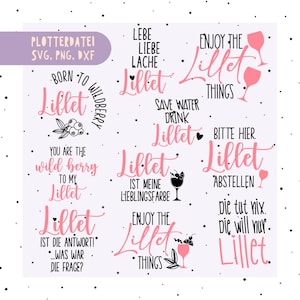 PLOTTERDATEI
SVG, PNG, DXF
BORN TO WILDBERRY
Lillet
YOU ARE THE
wild berry
TO MY
Lillet
Lillet
IST DIE ANTWORT!
...WAS WAR
DIE FRAGE?
LEBE
LIEBE
LACHE
Lillet
SAVE WATER
DRINK
Lillet
Lillet
IST MEINE
LIEBLINGSFARBE
ENJOY THE
Lillet
THINGS
ENJOY THE
Lillet
THINGS
BITTE HIER
Lillet
ABSTELLEN
die tut nix.
die will nur
Lillet.